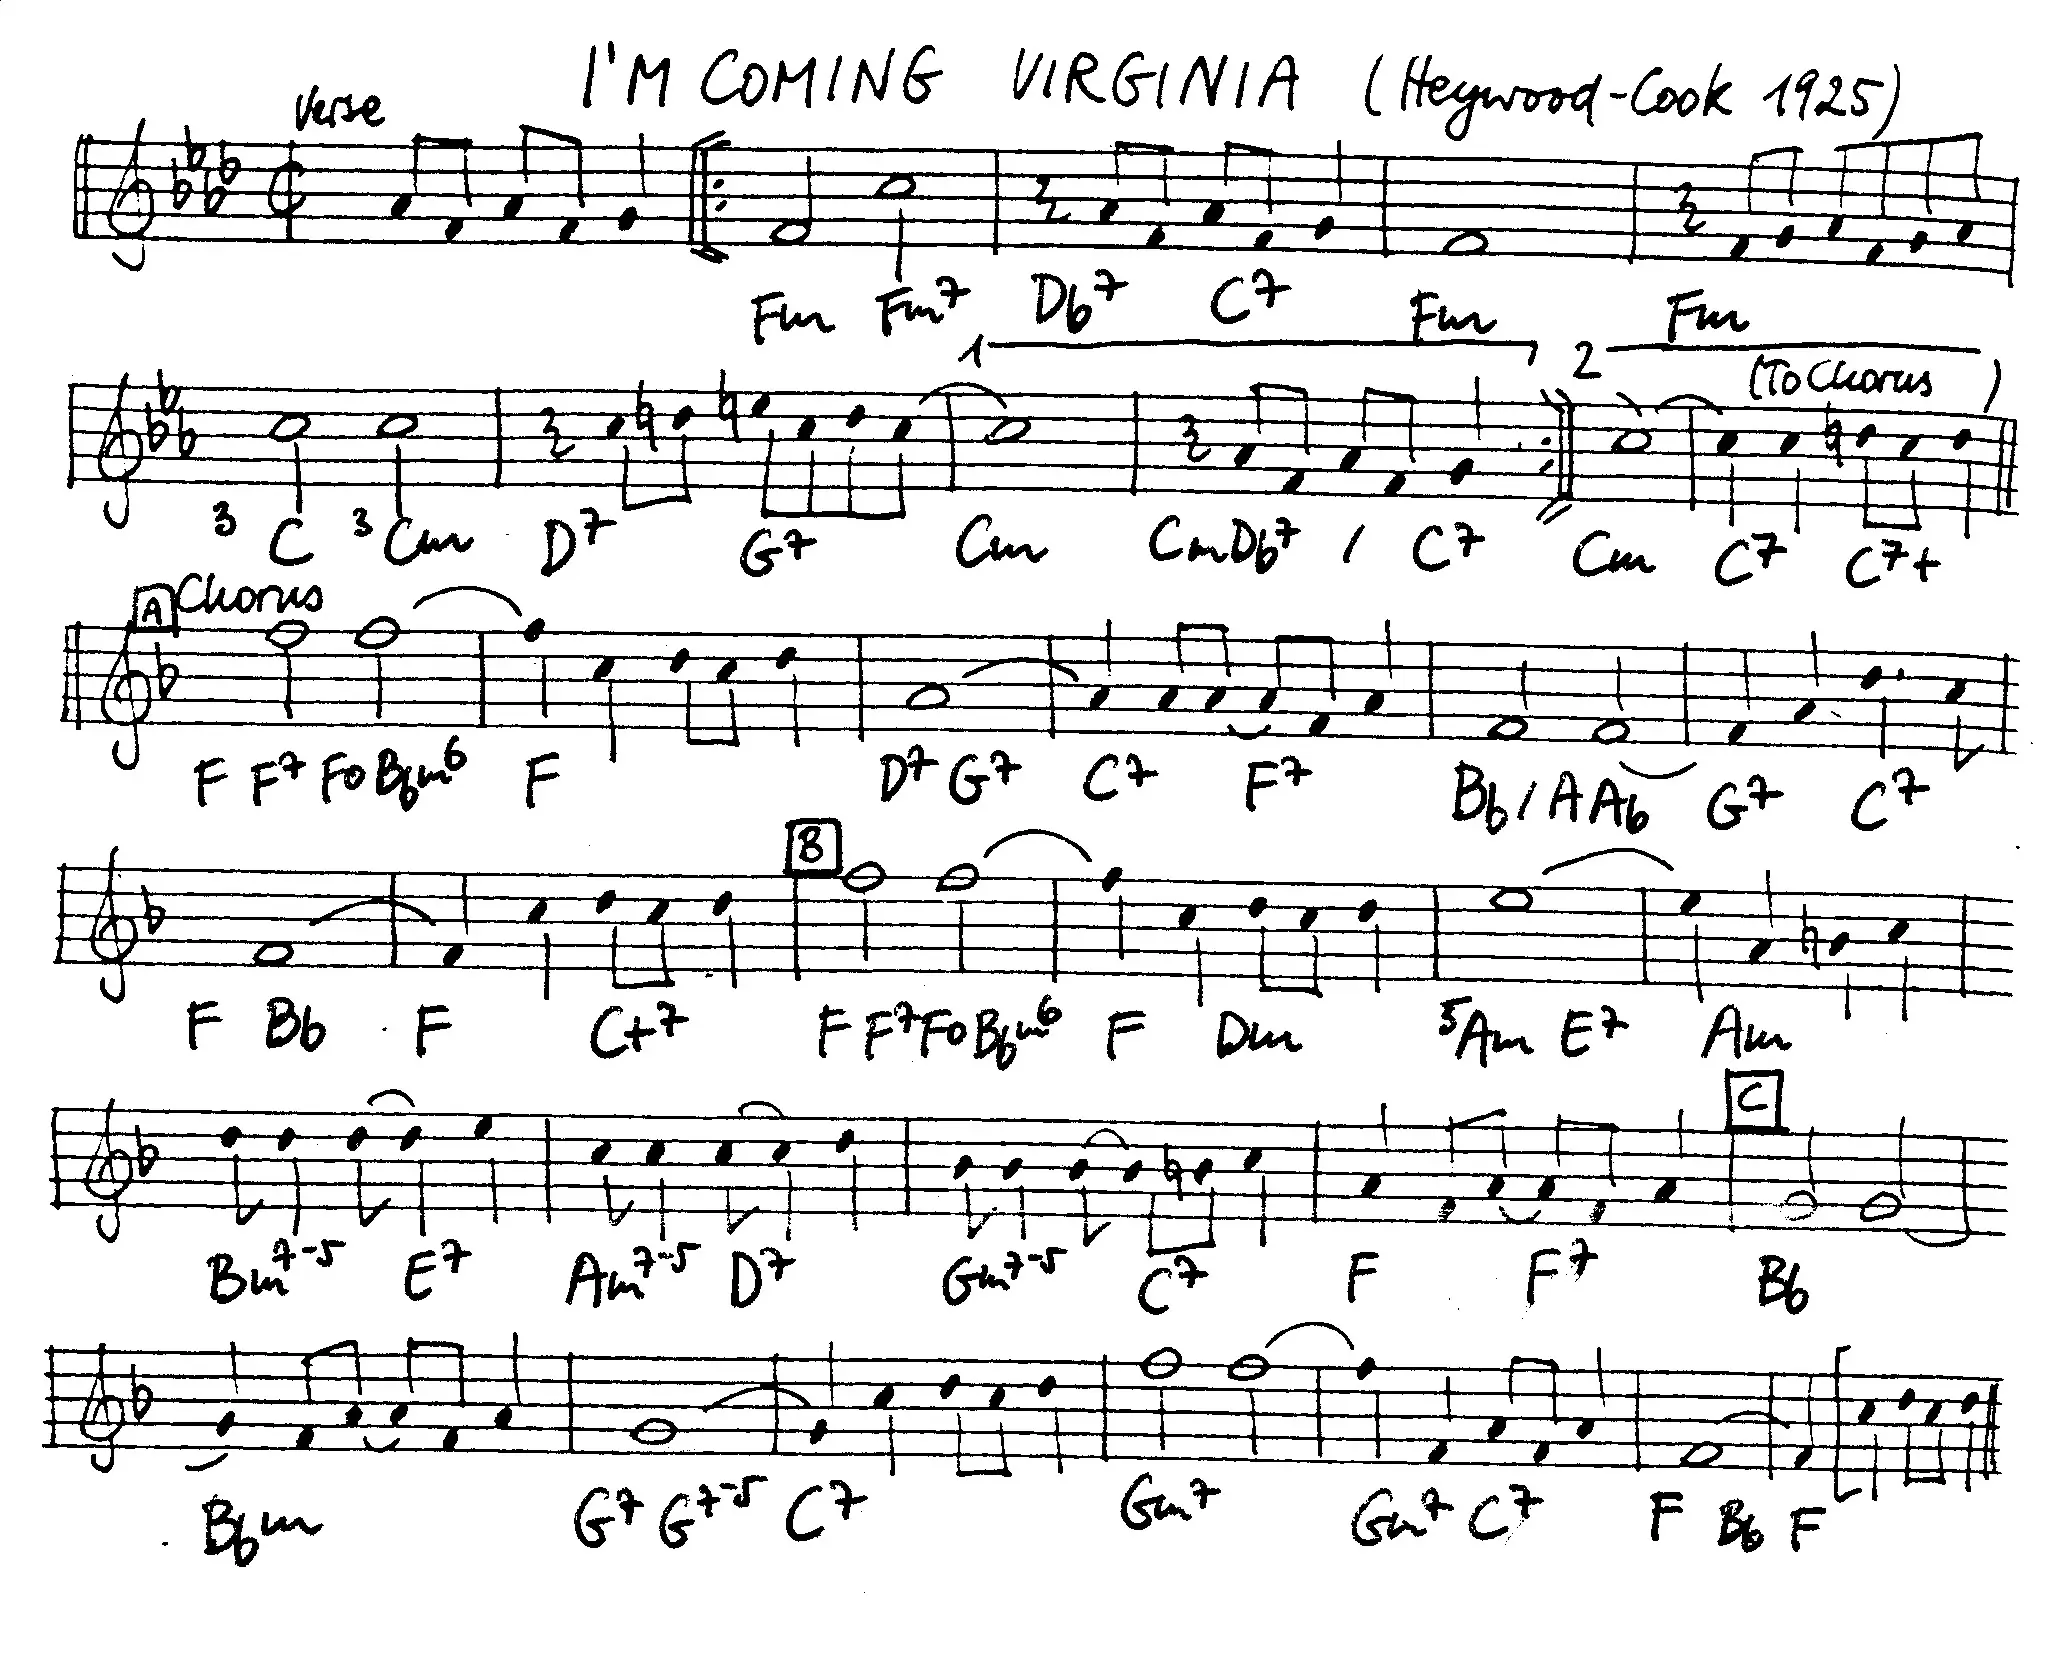 I'M COMING VIRGINIA (Heywood-Cook 1925)
Verse
Fm Fm7 Db7 C7 Fm Fm
1 2 (To Chorus)
3 C 3 Cm D7 G7 Cm Cm Db7 / C7 Cm C7 C7+
A Chorus
F F7 Fo Bbm6 F D7 G7 C7 F7 Bb / A Ab G7 C7
B
F Bb F C+7 F F7 Fo Bbm6 F Dm 5 Am E7 Am
C
Bm7-5 E7 Am7-5 D7 Gm7-5 C7 F F7 Bb
Bbm G7 G7-5 C7 Gm7 Gm7 C7 F Bb F